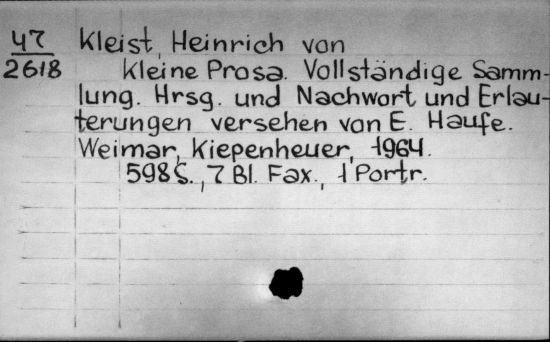 47 Kleist, Heinrich von
2618 Kleine Prosa. Vollständige Samm-
lung. Hrsg. und Nachwort und Erläu-
terungen versehen von E. Haufe.
Weimar, Kiepenheuer, 1964.
598 S., 7 Bl. Fax., 1 Portr.